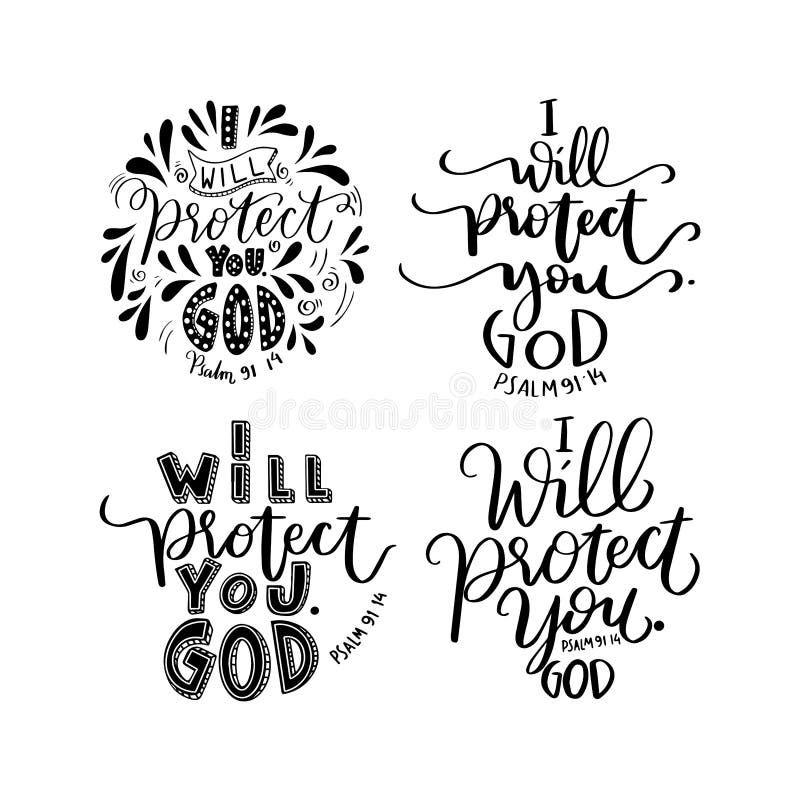 I
WILL
protect
YOU.
GOD
Psalm 91 14
I
will
protect
you.
GOD
PSALM 91·14
I
WILL
protect
YOU.
GOD
PSALM 91 14
I
Will
protect
You.
PSALM 91 14
GOD
dreamstime